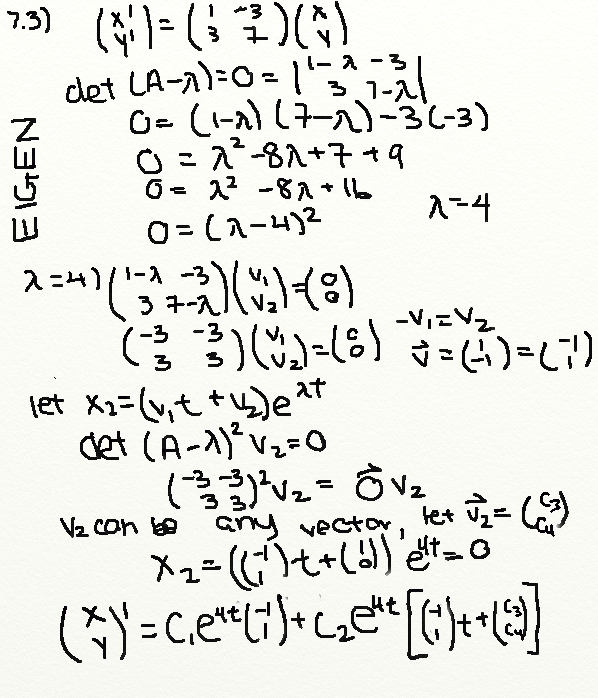 7.3) (x' y') = (1 -3 3 7)(x y)
det (A-λ)=0= |1-λ -3 3 7-λ|
0= (1-λ)(7-λ)-3(-3)
0 = λ²-8λ+7+9
0= λ² -8λ+16
0=(λ-4)² λ=4
EIGEN
λ=4) (1-λ -3 3 7-λ)(v₁ v₂)=(0 0)
(-3 -3 3 3)(v₁ v₂)=(0 0) -v₁=v₂ v⃗=(1 -1)=(-1 1)
let x₂=(v₁t+v₂)e^λt
det (A-λ)²v₂=0
(-3 -3 3 3)²v₂= 0⃗ v₂
v₂ can be any vector, let v⃗₂=(c₃ c₄)
x₂=((-1 1)t+(1 0))e^4t=0
(x y)'=c₁e^4t(-1 1)+c₂e^4t[(-1 1)t+(c₃ c₄)]